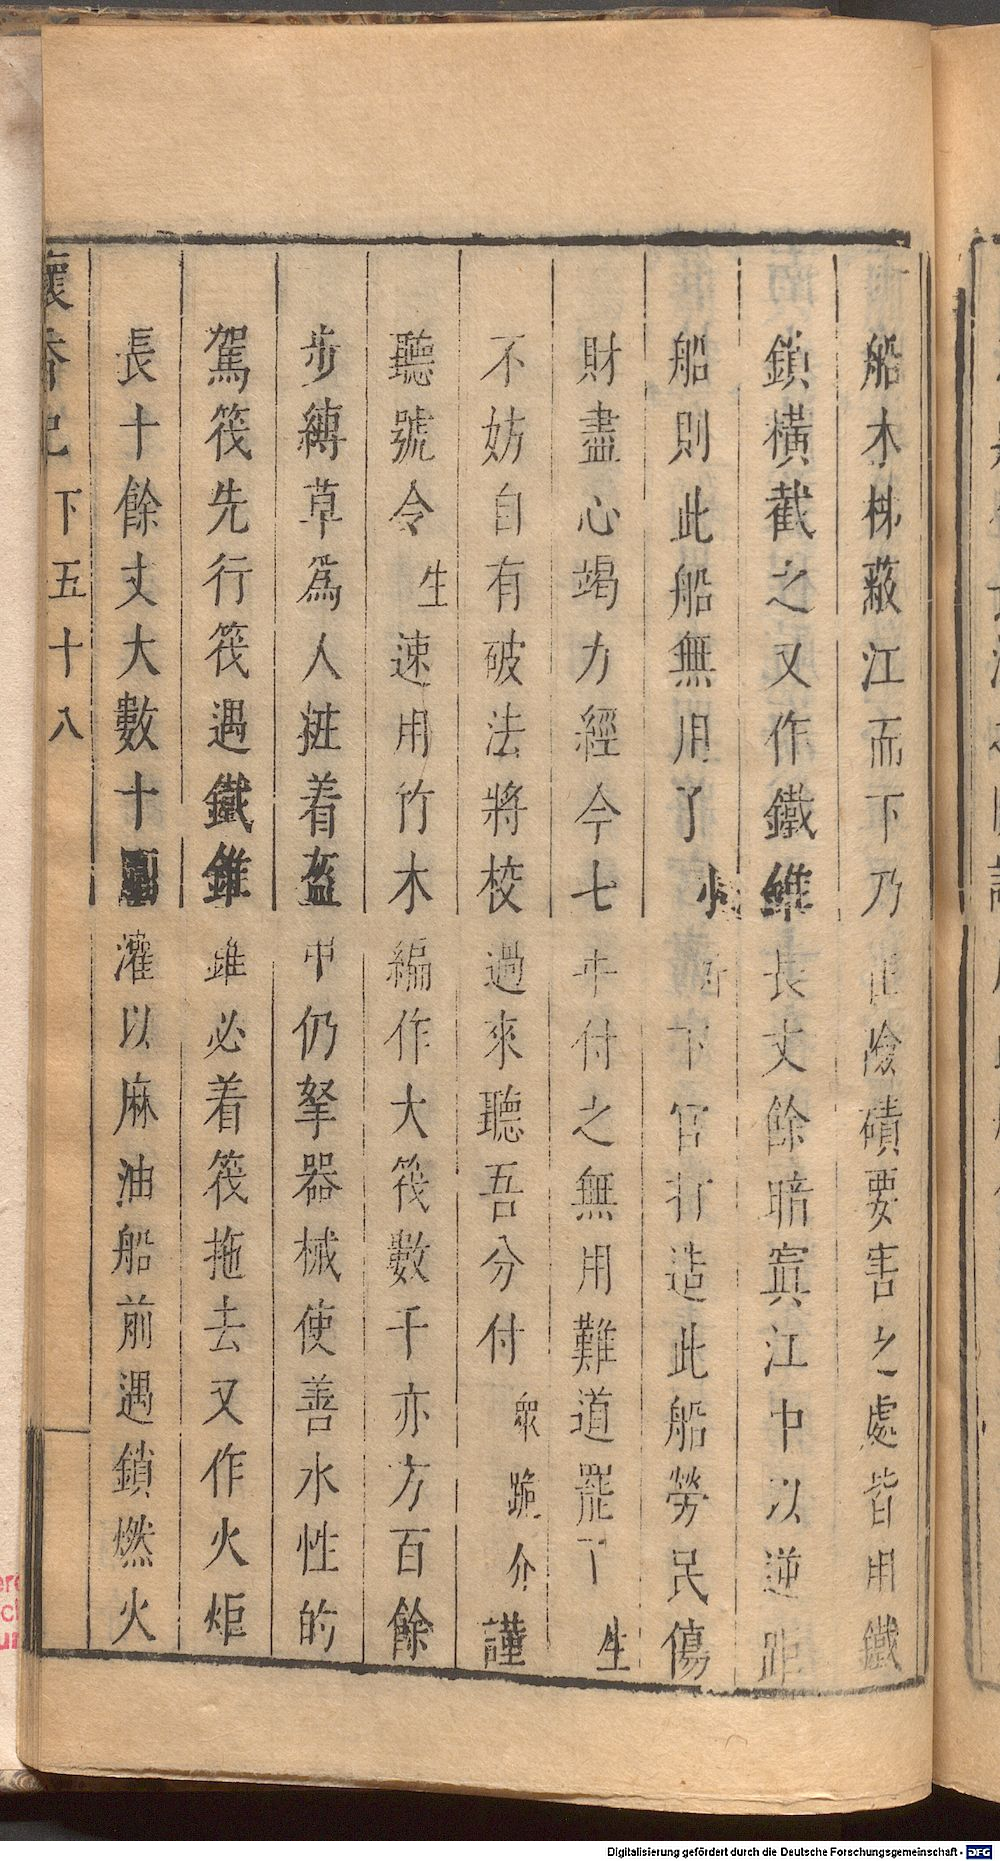 船木柹蔽江而下乃在險磧要害之處皆用鐵
鎖橫截之又作鐵錐長丈餘暗寘江中以逆距
船則此船無用了小下官打造此船勞民傷
財盡心竭力經今七年付之無用難道罷了生
不妨自有破法將校過來聽吾分付衆跪介謹
聽號令生速用竹木編作大筏數千亦方百餘
步縛草爲人粧着盔甲仍拏器械使善水性的
駕筏先行筏遇鐵錐錐必着筏拖去又作火炬
長十餘丈大數十圍灌以麻油船前遇鎖燃火
懷香記 下五十八
Digitalisierung gefördert durch die Deutsche Forschungsgemeinschaft - DFG